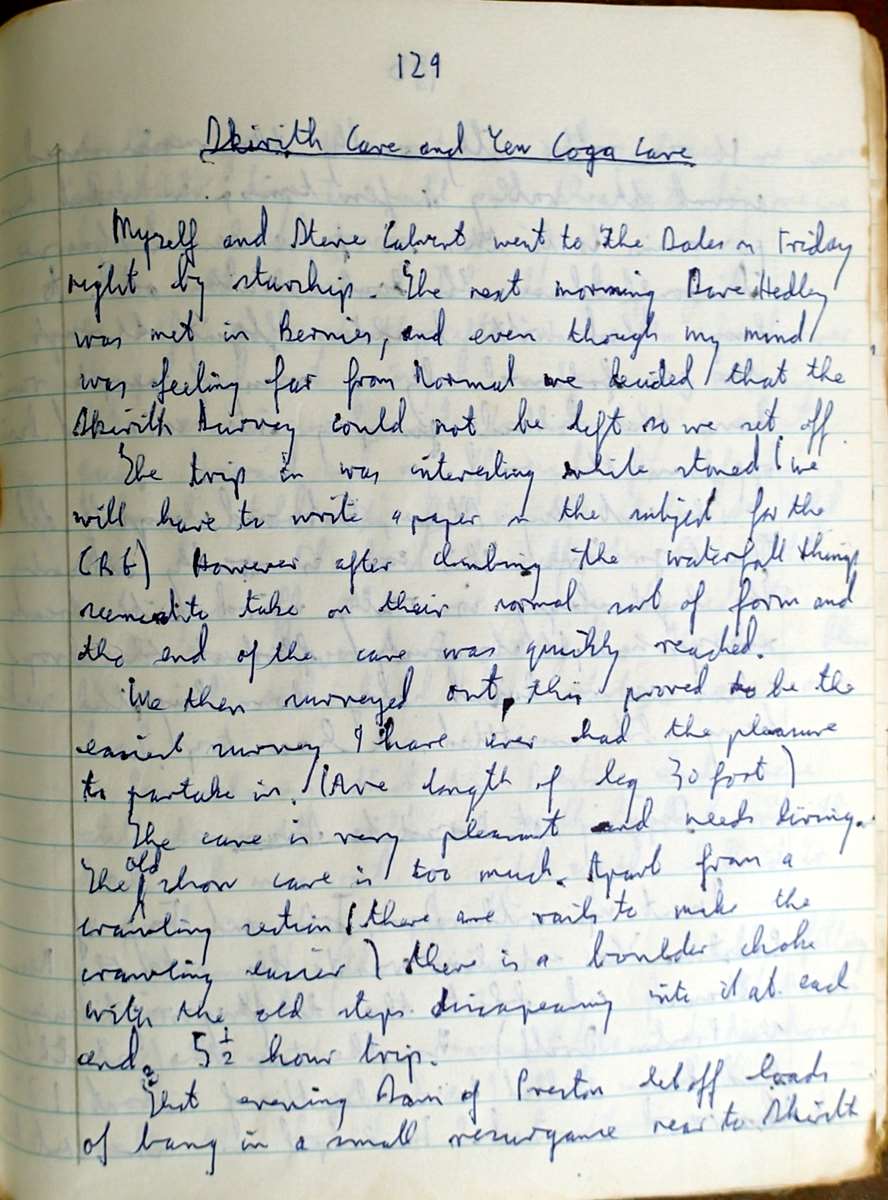 129
Skirith Cave and Yew Coga Cave
Myself and Steve Calvert went to the Dales on Friday
night by starship. The next morning Dave Hedley
was met in Bernies, and even though my mind
was feeling far from Normal we decided that the
Skirith Survey could not be left so we set off
The trip in was interesting while stoned (we
will have to write a paper on the subject for the
CRG) However after climbing the waterfall things
seemed to take on their normal sort of form and
the end of the cave was quickly reached.
We then surveyed out, this proved to be the
easiest survey I have ever had the pleasure
to partake in. (Ave length of leg 30 foot)
The cave is very pleasant and needs diving.
The old show cave is too much. Apart from a
crawling section (there are rails to make the
crawling easier) there is a boulder choke
with the old steps disapearing into it at each
end. 5 1/2 hour trip.
That evening Sam of Preston let off loads
of bang in a small resurgance near to Skirith